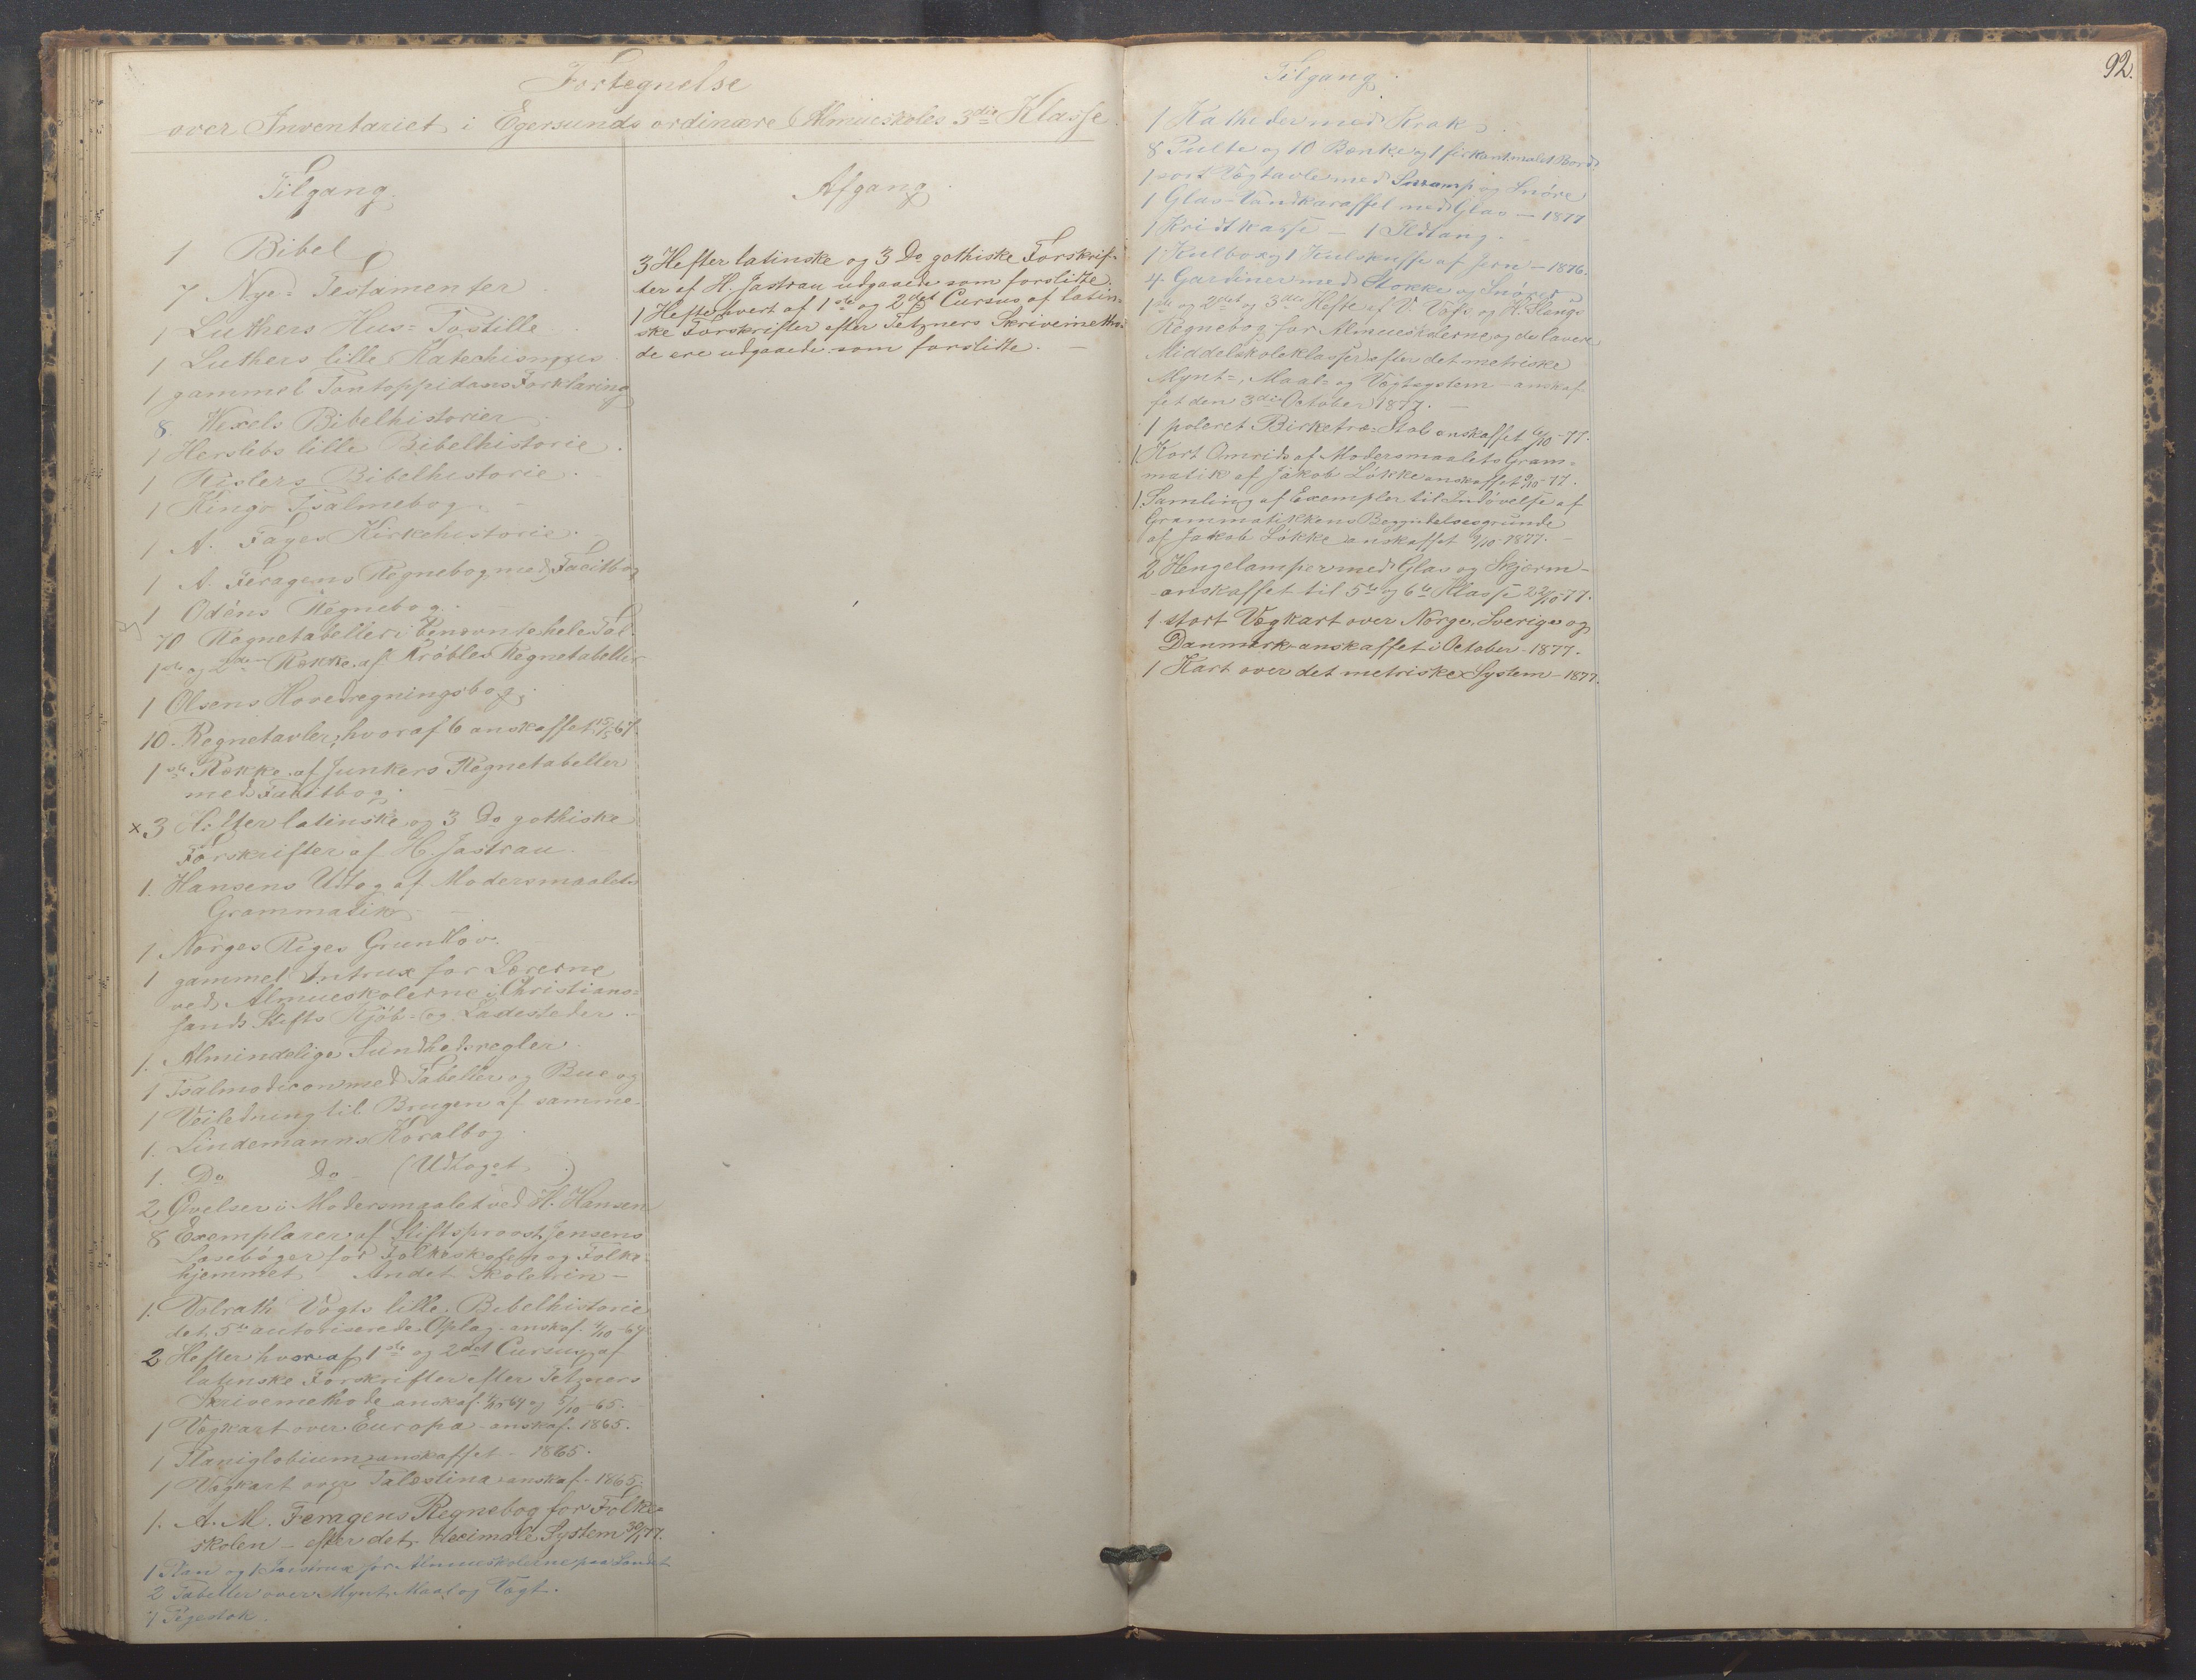 Fortegnelse
over Inventariet i Egersunds ordinære Almueskoles 3die Klasse.
Tilgang.
1 Bibel
7 Nye-Testamenter
1 Luthers Hus-Postille
1 Luthers lille Katechismus
1 gammel Pontoppidans Forklaring
8. Wexels Bibelhistorier
1 Herslebs lille Bibelhistorie.
1 Bibelhistorie.
1 Kingo Psalmebog
1 A. Fayes Kirkehistorie.
1 A. Feragens Regnebog med Facitbog
1 Odéns Regnebog.
70 Regnetabeller i benævnte hele Tal.
1ste og 2den Række af Krøbles Regnetabeller
1 Olsens Hovedregningsbog.
10. Regnetavler, hvoraf 6 anskaffet 15/5-67.
1ste Række af Junkers Regnetabeller
med Facitbog.
x 3 Hefter latinske og 3 Do gothiske
Forskrifter af H. Jastrau.
1. Hansens Udtog af Modersmaalets
Grammatik
1 Norges Riges Grundlov.
1 gammel Intrux for Lærerne
ved Almueskolerne i Christians-
sands Stifts Kjøb- og Ladesteder.
1. Almindelige Sundhedsregler.
1 Psalmodicon med Tabeller og Bue og
1 Veiledning til Brugen af samme.
1. Lindemanns Koralbog.
1. Do Do (Udtoget)
2 Øvelser i Modersmaalet ved H. Hansen
8 Exemplarer af Stiftsprovst Jensens
Læsebøger for Folkeskolen og Folke-
hjemmet Andet Skoletrin —
1. Volrath Vogts lille Bibelhistorie
det 5te autoriserede Oplag - anskaf. 4/10-64.
2 Hefter hvoraf 1ste og 2det Cursus af
latinske Forskrifter efter Tetzners
Skrivemethode anskaf. og 5/10-65.
1 Vægkart over Europa - anskaf. 1865.
1 Planiglobium anskaffet - 1865.
1 Vægkart over Palæstina anskaf. 1865.
1. A. M. Feragens Regnebog for Folke-
skolen - efter det decimale System
1 Plan og 1 Instrux for Almueskolerne paa Landet
2 Tabeller over Mynt, Maal og Vægt.
1 Pegestok.
Afgang.
3 Hefter latinske og 3 Do gothiske Forskrif-
ter af H. Jastrau udgaaede som forslidte.
1 Hefte hvert af 1ste og 2det Cursus af latin-
ske Forskrifter efter Tetzners Skrivemetho-
de ere udgaaede som forslidte. —
92.
Tilgang.
1 Katheder med Krak.
8 Pulte og 10 Bænke og 1 firkant malet Bord.
1 sort Vægtavle med Svamp og Snøre
1 Glas-Vandkaraffel med Glas — 1877
1 Kridtkasse — 1 Ildtang.
1 Kulbox og 1 Kulskuffe af Jern — 1876.
4 Gardiner med Stokke og Snører
1ste og 2det og 3die Hefte af V. Voss og H. Slangs
Regnebog for Almueskolerne og de lavere
Middelskoleklasser efter det metriske
Mynt-, Maal- og Vægtsystem - anskaf-
fet den 3die October 1877. —
1 poleret Birketræ-Stol anskaffet 6/10-77.
1 Kort Omrids af Modersmaalets Gram-
matik af Jakob Løkke anskaffet 9/10-77.
1. Samling af Exempler til Indøvelse af
Grammatikkens Begyndelsesgrunde
af Jakob Løkke anskaffet 9/10-1877. —
2 Hengelamper med Glas og Skjerm —
anskaffet til 5te og 6te Klasse 22/10-77.
1 stort Vægkart over Norge, Sverige og
Danmark anskaffet i October - 1877.
1 Kart over det metriske System - 1877.